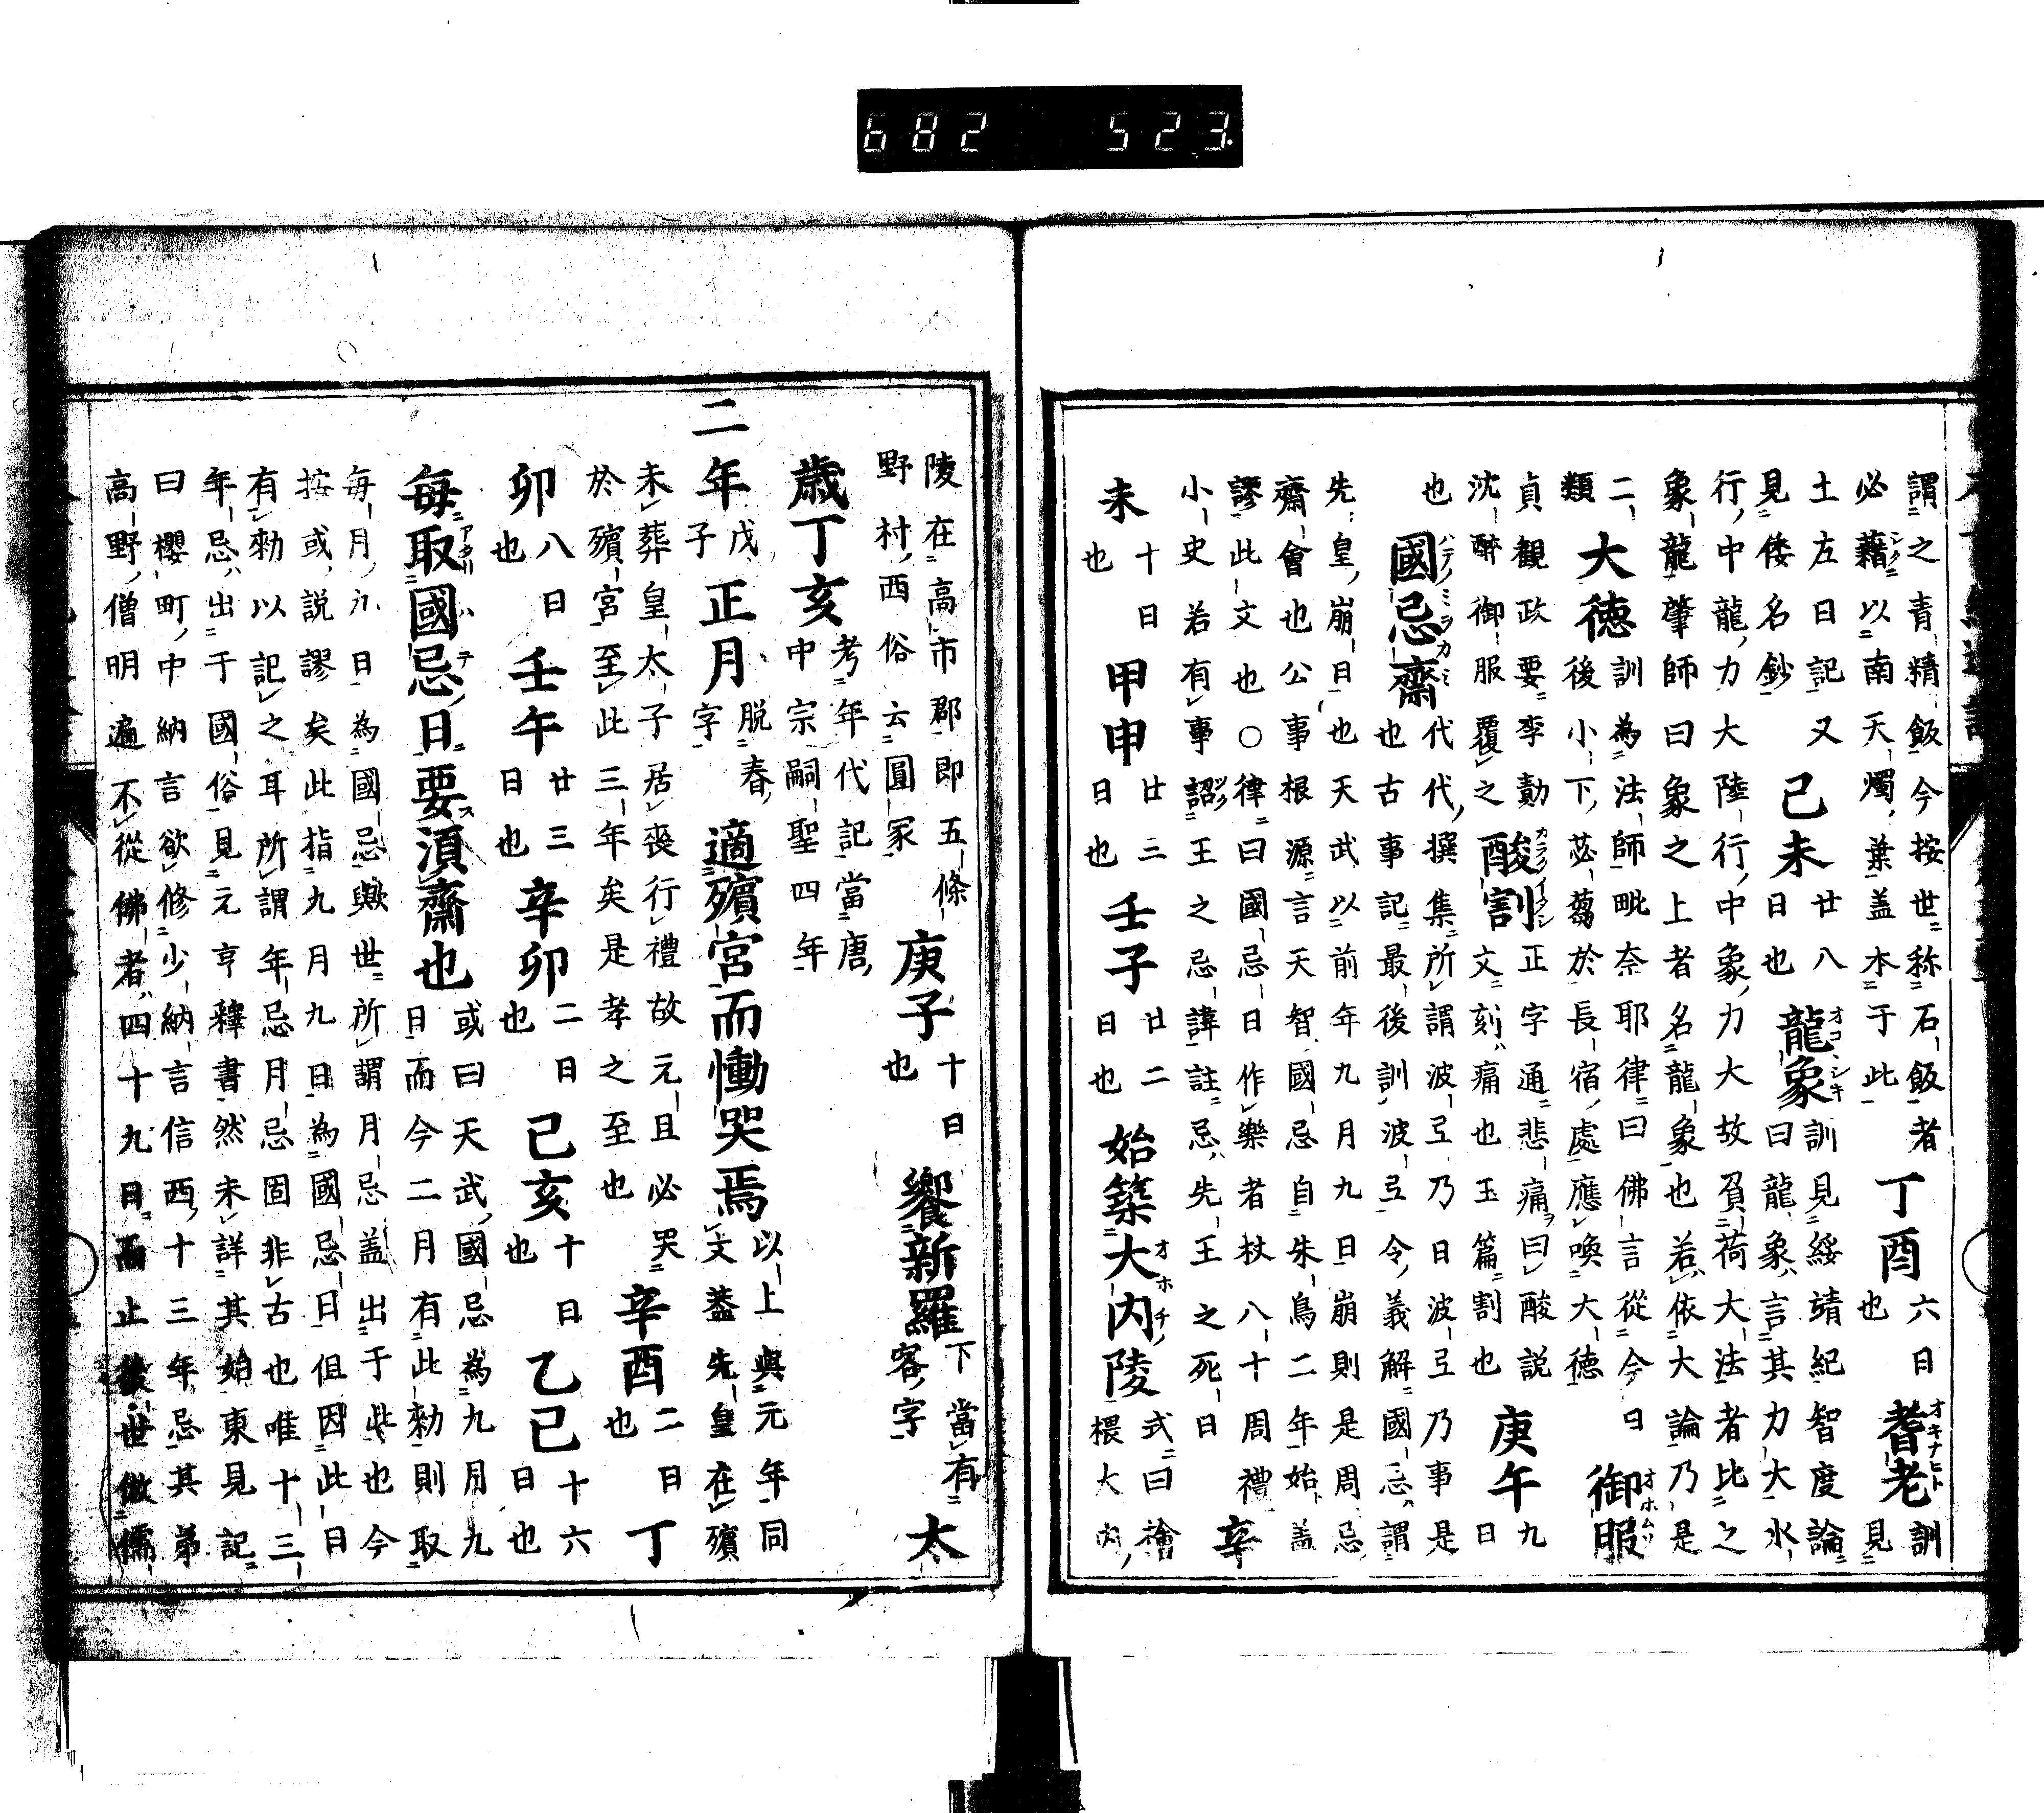 682 523
謂之青精飯今按世称石飯者 丁酉 六日也 耆老 訓見
必藉以南天燭葉盖本于此
土左日記又 己未 廿八日也 龍象 訓見綏靖紀智度論
見倭名鈔 曰龍象言其力大水
行中龍力大陸行中象力大故負荷大法者比之
象龍肇師曰象之上者名龍象也若依大論乃是
二類 大徳 訓為法師毗奈耶律曰佛言從今日後小下苾蒭於長宿處應喚大德 御服
貞觀政要李勣沈醉御服覆之 酸割 正字通悲痛曰酸説文刻痛也玉篇割也 庚午 九日
也 國忌齋 代代撰集所謂波弖乃日波弖乃事是也古事記最後訓波弖令義解國忌謂
先皇崩日也天武以前年九月九日崩則是周忌
齋會也公事根源言天智國忌自朱鳥二年始盖
謬此文也○律曰國忌日作樂者杖八十周禮 辛
小史若有事詔王之忌諱註忌先王之死日
未 十日也 甲申 廿二日也 壬子 廿二日也 始築大内陵 式曰檜隈大内
陵在高市郡即五條野村西俗云圓冢 庚子 十日也 饗新羅 下當有客字 太
歲丁亥 考年代記當唐中宗嗣聖四年
二年 戊子 正月 脱春字 適殯宮而慟哭焉 以上與元年同文葢先皇在殯
未葬皇太子居喪行禮故元且必哭 辛酉 二日也 丁
於殯宮至此三年矣是孝之至也
卯 八日也 壬午 廿三日也 辛卯 二日也 己亥 十日也 乙巳 十六日也
每取國忌日要湏齋也 或曰天武國忌為九月九日而今二月有此勅則取
每月九日為國忌歟世所謂月忌盖出于此也今
按或説謬矣此指九月九日為國忌日但因此日
有勅以記之耳所謂年忌月忌固非古也唯十三
年忌出于國俗見元亨釋書然未詳其始東見記
曰櫻町中納言欲修少納言信西十三年忌其弟
高野僧明遍不從佛者四十九日而止後世倣儒